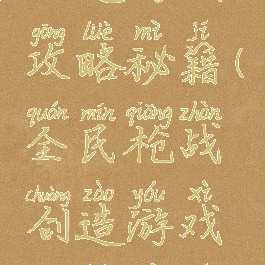 gōng lüè mì jí
攻略秘籍(
quán mín qiāng zhàn
全民枪战
chuàng zào yóu xì
创造游戏